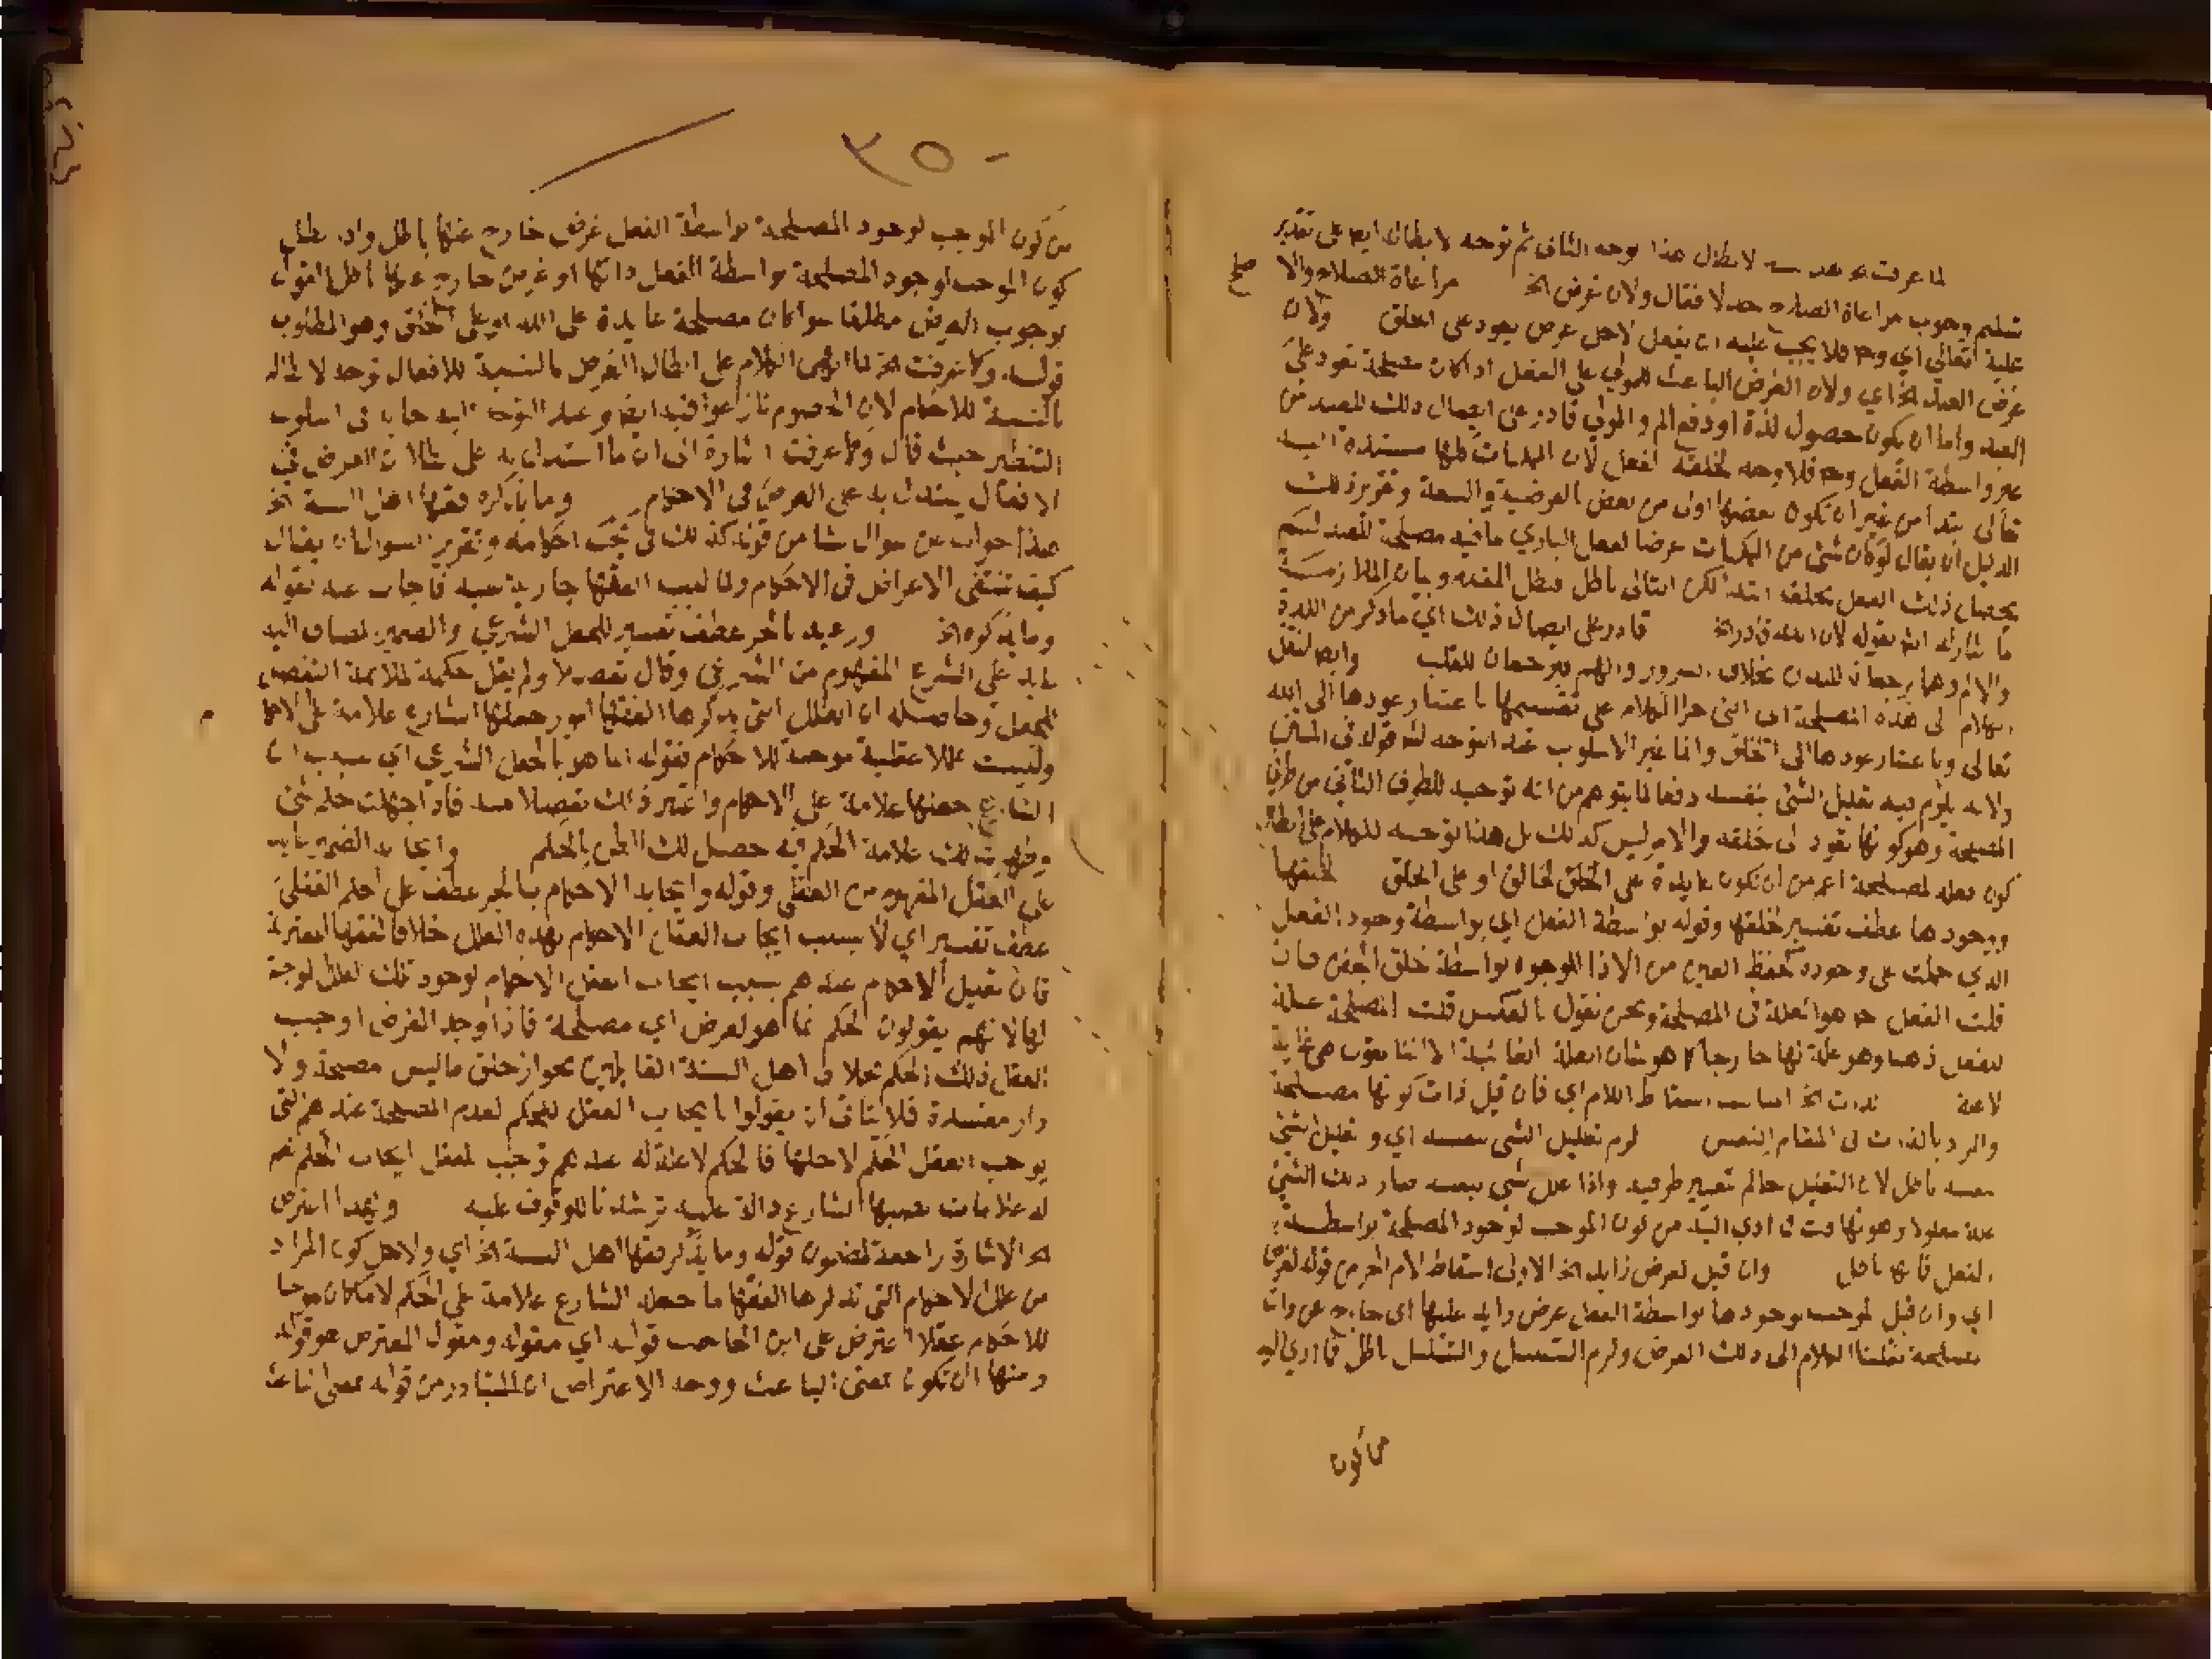 لما عرفت لابطال هذا توجه الثاني ثم توجه لابطاله ايضا على تقدير
تسليم وجوب مراعاة الصلاح فقال ولان غرض الخ مراعاة الصلاح والا
عليه تعالى اي وح فلا يجب عليه ان يفعل لاجل غرض يعود على الخلق ولان
غرض العبد الخ اي ولان الغرض الباعث للمولى على الفعل اذا كان مصلحة تعود على
العبد واما ان يكون حصول لذة او دفع الم والمولى قادر على ايصال ذلك للعبد من
غير واسطة الفعل وح فلا وجه لخلقه الفعل لان الممكنات كلها مستندة اليه
تعالى ابتدا من غير ان يكون بعضها اولى من بعض بالغرضية والسببية وتقرير ذلك
الدليل ان يقال لو كان شئ من الممكنات غرضا لفعل الباري ما فيه مصلحة للعبد لم
يحصل ذلك الفعل بخلقه ابتدا لكن التالي باطل فبطل المقدم وبيان الملازمة
ما اشار له بقوله لان الله قادر الخ قادر على ايصال ذلك اي ما ذكر من اللذة
والالم وهما يرجعان للبدن بخلاف السرور والهم فيرجعان للقلب وايضا لنقل
الكلام الى هذه المصلحة اي التي جرا الكلام على تقسيمها باعتبار عودها الى الله
تعالى وباعتبار عودها الى الخلق وانما غير الاسلوب عند التوجه له قوله في الساق
ولانه يلزم فيه تعليل الشئ بنفسه دفعا لما يتوهم من انه توجيه للطرف الثاني من طرفي
المصلحة وهو كونها تعود الى خلقه والامر ليس كذلك بل هذا توجيه للكلام على ابطال
كون فعله لمصلحة اعم من ان تكون عايدة على الخالق او على الخلق لخلقها
ووجودها عطف تفسير لخلقها وقوله بواسطة الفعل اي بواسطة وجود الفعل
الذي حملت على وجوده كحفظ العين من الاذا الموجود بواسطة خلق الجفن فان
قلت الفعل ح هو العلة في المصلحة ونحن نقول بالعكس قلت المصلحة علة
للفعل ذهنا وهو علة لها خارجا كما هو شان العلة الغائية
لذات الخ المناسب اسقاط اللام اي فان قيل ذات كونها مصلحة
والمراد بالذات في المقام النفس لزم تعليل الشئ بنفسه اي وتعليل الشئ
بنفسه باطل لان التعليل حاكم بتغيير طرفيه واذا علل شئ بنفسه صار ذلك الشئ
علة معلولا وهو تهافت فما ادي اليه من كون الموجب لوجود المصلحة بواسطة
الفعل ذاتها باطل وان قيل لغرض زايد الخ الاولى اسقاط لام الجر من قوله لغرض
اي وان قيل الموجب لوجودها بواسطة الفعل غرض زايد عليها اي خارج عن ذات
المصلحة نقلنا الكلام الى ذلك الغرض ولزم التسلسل والتسلسل باطل فما ادي اليه
من كون
٢٥٠
من كون الموجب لوجود المصلحة بواسطة الفعل غرض خارج عنها باطل واذا بطل
كون الموجب لوجود المصلحة بواسطة الفعل ذاتها او غرض خارج عنها بطل القول
بوجوب الغرض مطلقا سوا كان مصلحة عايدة على الله او على الخلق وهو المطلوب
قوله وكما عرفت الخ لما انهى الكلام على ابطال الغرض بالنسبة للافعال توجه لابطاله
بالنسبة للاحكام لان الخصوم نازعوا فيه ايضا وعند التوجه اليه جا به في اسلوب
التنظير حيث قال وكما عرفت اشارة الى ان ما استدل به على بطلان الغرض في
الافعال يستدل به على الغرض في الاحكام وما يذكره فقها اهل السنة الخ
هذا جواب عن سوال نشا من قوله كذلك في احكامه وتقرير السوال ان يقال
كيف تنتفي الاعراض في الاحكام وغالب الفقها جارية عليه فاجاب عنه بقوله
وما يذكره الخ ورعيه بالجر عطف تفسير للجعل الشرعي والضمير المضاف اليه
عايد على الشرع المفهوم من الشرعي وقال تفضلا ولم يقل حكمة لملائمة التفضل
للجعل وحاصله ان العلل التي يذكرها الفقها امور جعلها الشارع علامة على الاحكام
وليست عللا عقلية موجبة للاحكام فقوله انما هو بالجعل الشرعي اي بسبب ان
الشارع جعلها علامة على الاحكام واعتبر ذلك تفضلا منه فاذا جهلت حكم شئ
وظهرت لك علامة الحكم فيه حصل لك الظن بالحكم وايجابه الضمير عايد
على العقل المفهوم من العقلي وقوله وايجابه الاحكام بالجر عطف على الحكم العقلي
عطف تفسير اي لا بسبب ايجاب العقل الاحكام بهذه العلل خلافا لفقها المعتزلة
فان تعليل الاحكام عندهم بسبب ايجاب العقل الاحكام لوجود تلك العلل لوجبة
لها لانهم يقولون الحكم انما هو لغرض اي مصلحة فاذا وجد الغرض اوجب
العقل ذلك الحكم بخلاف اهل السنة القايلين بجواز خلق ما ليس مصلحة ولا
دار مفسدة فلا يتاتى ان يقولوا بايجاب العقل للحكم لعدم المصلحة عندهم التي
يوجب العقل الحكم لاجلها فالحكم لا علة له عندهم توجب للعقل ايجاب الحكم نعم
له علامات نصبها الشارع دالة عليه ترشدنا للوقوف عليه ولهذا اعترض
الخ الاشارة راجعة لمضمون قوله وما يذكره فقها اهل السنة الخ اي ولاجل كون المراد
من علل الاحكام التي تذكرها الفقها ما جعله الشارع علامة على الحكم لا ما كان موجبا
للاحكام عقلا اعترض على ابن الحاجب قوله اي مقوله ومقول المعترض هو قوله
ومنها ان تكون بمعنى الباعث ووجه الاعتراض ان المتبادر من قوله بمعنى الباعث